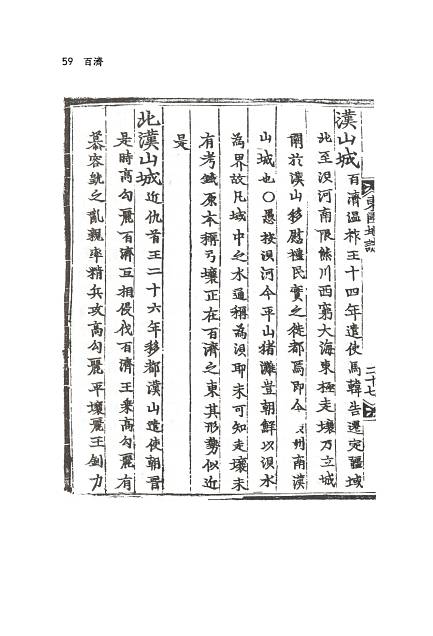 59 百濟
東國地誌
二十七
漢山城 百濟溫祚王十四年遣使馬韓告遷定疆域
北至浿河南限熊川西窮大海東極走壤乃立城
闕於漢山移慰禮民實之徙都焉即今 州南漢
山城也○愚按浿河今平山猪灘豈朝鮮以浿水
為界故凡域中之水通稱為浿耶未可知走壤未
有考鍼原本稱弓壤正在百濟之東其形勢似近
是
北漢山城 近仇首王二十六年移都漢山遣使朝晋
是時高勾麗百濟互相侵伐百濟王衆高勾麗有
慕容皝之亂親率精兵攻高勾麗平壤麗王釗力